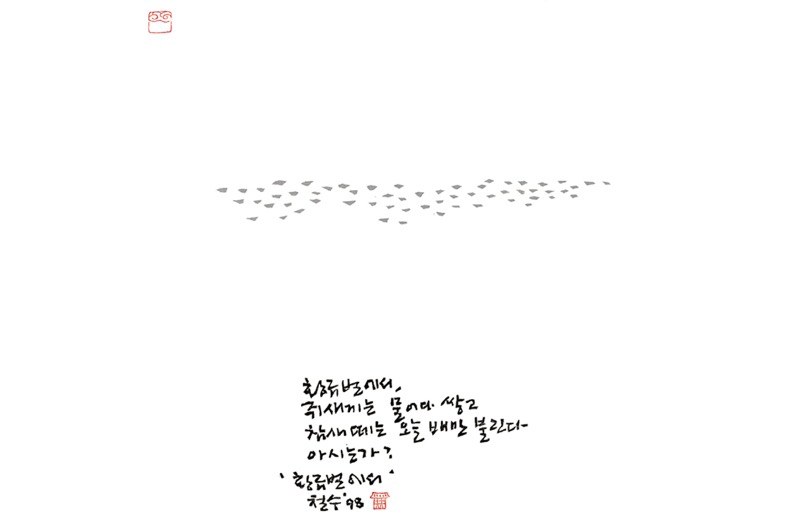 황금벌에서,
쥐새끼는 물어다 쌓고
참새 떼는 오늘 배만 불린다-
아시는가?
'황금벌에서'
철수 '98